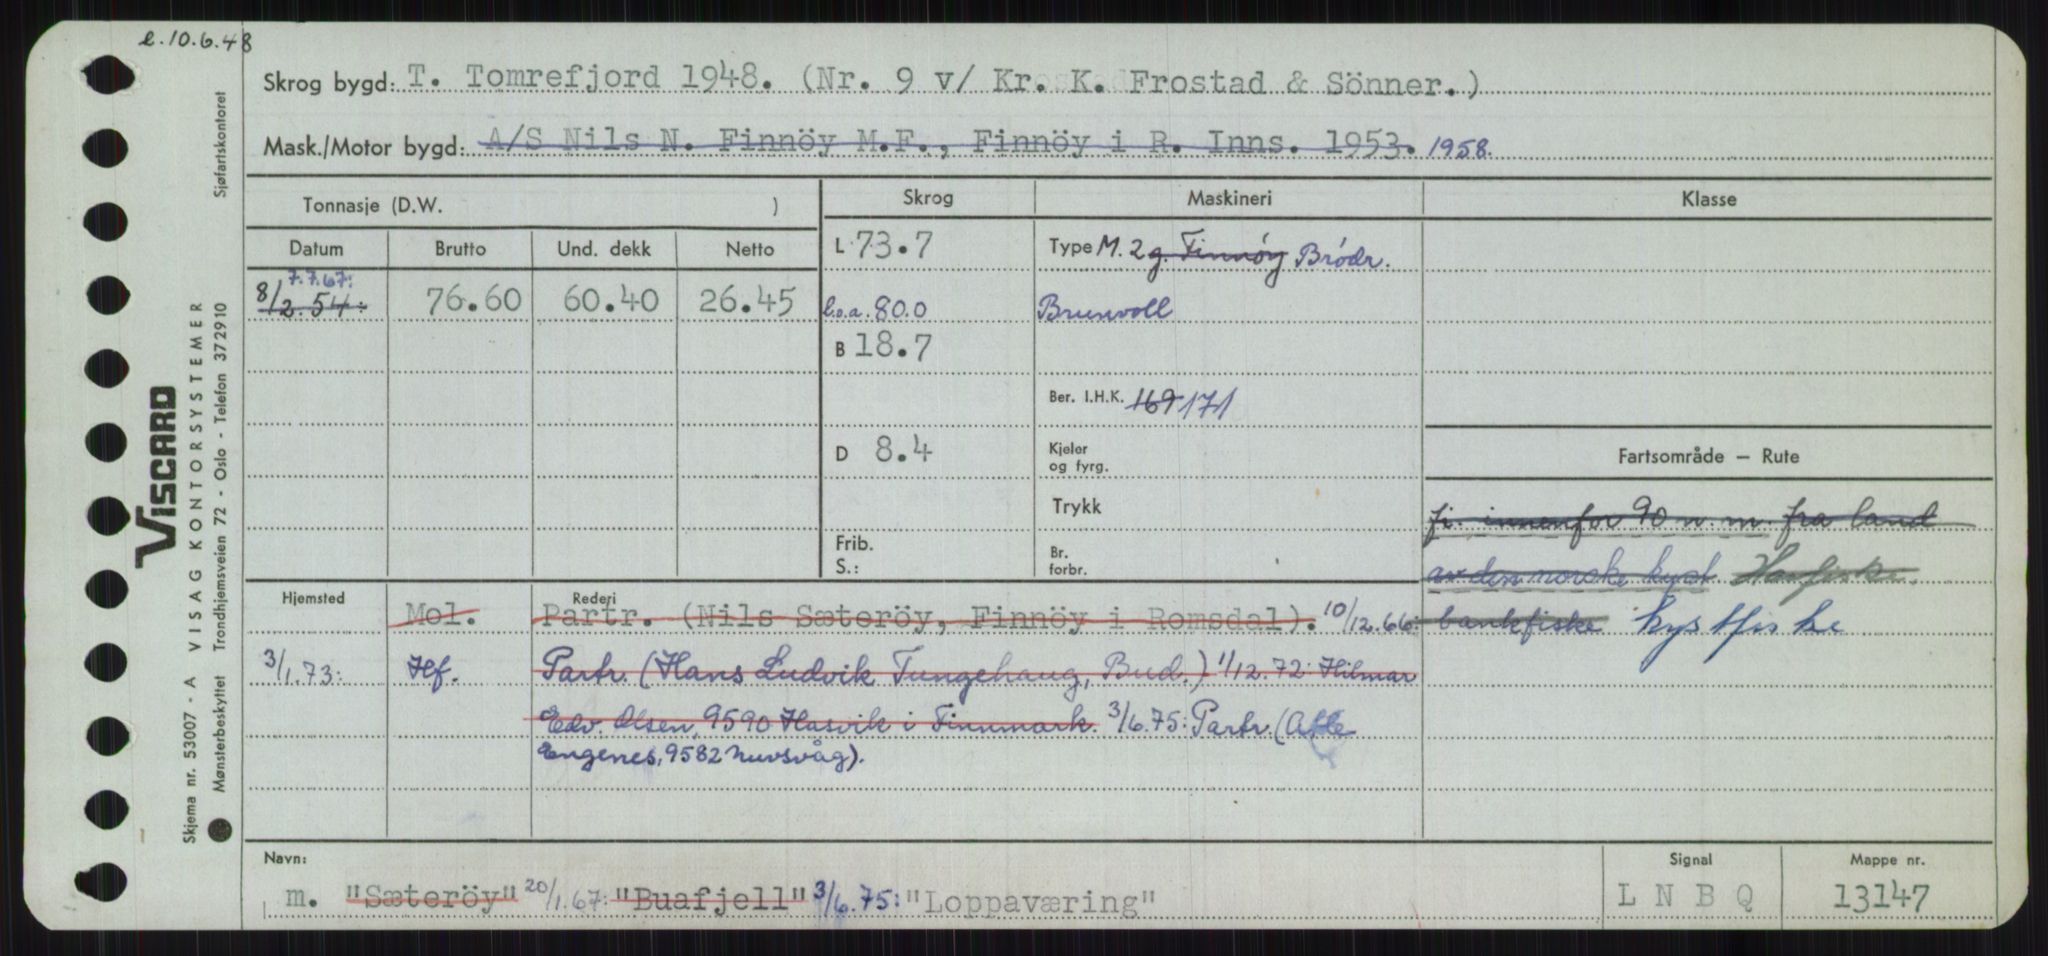 e. 10.6.48
Skrog bygd: T. Tomrefjord 1948. (Nr. 9 v/ Kr. K. Frostad & Sönner.)
Mask./Motor bygd: A/S Nils N. Finnöy M.F., Finnöy i R. Inns. 1953. 1958.
Tonnasje (D.W. )
Skrog
Maskineri
Klasse
Datum
Brutto
Und. dekk
Netto
7.7.67:
8/2.54:
76.60
60.40
26.45
L 73.7
l.o.a. 80.0
B 18.7
D 8.4
Frib.
S.:
Type M. 2 g. Finnöy Brödr.
Brunvoll
Ber. I.H.K. 169 171
Kjeler
og fyrg.
Trykk
Br.
forbr.
Fartsområde — Rute
fi. innenfor 90 n.m. fra land
av den norske kyst Havfiske.
bankfiske kystfiske
Hjemsted
Rederi
Mol.
Partr. (Nils Sæteröy, Finnöy i Romsdal). 10/12.66:
3/1.73:
Hf.
Partr. (Hans Ludvik Tungehaug, Bud.) 1/12.72: Hilmar
Edv. Olsen, 9590 Hasvik i Finnmark. 3/6.75: Partr. (Atle
Engenes, 9582 Nuvsvåg).
Navn:
m. "Sæteröy" 20/1.67: "Buafjell" 3/6.75: "Loppaværing"
Signal
L N B Q
Mappe nr.
13147
Sjøfartskontoret
VISCARD
VISAG KONTORSYSTEMER
Trondhjemsveien 72 - Oslo - Telefon 372910
Skjema nr. 53007 - A
Mønsterbeskyttet